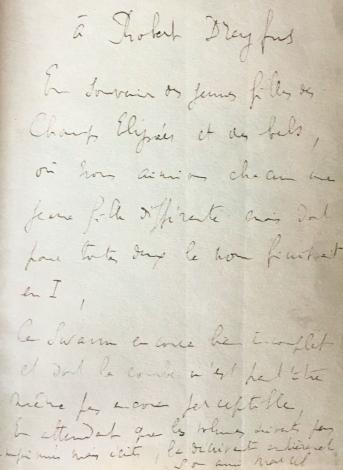 à Robert Dreyfus
En souvenir des jeunes filles des
Champs Elysées et des bals,
où nous aimions chacun une
jeune fille différente mais dont
pour toutes deux le nom finissait
en I,
ce Swann encore bien incomplet
et dont la courbe n'est peut'être
même pas encore perceptible,
En attendant que les volumes suivants pas
imprimés mais écrits, la
Son ami Marcel